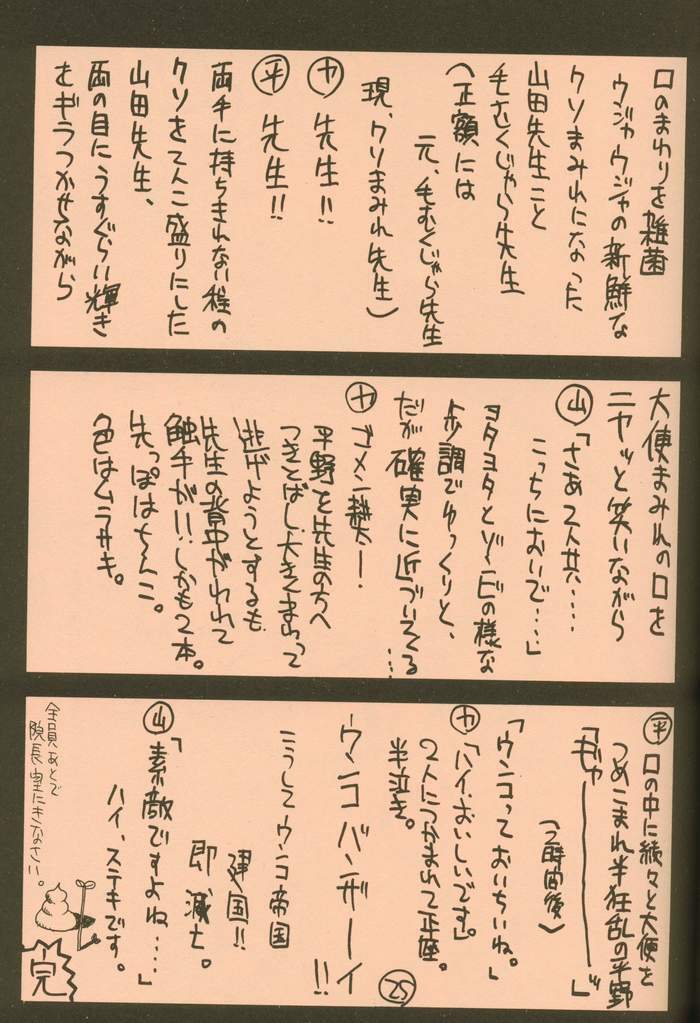 口のまわりを雑菌
ウジャウジャの新鮮な
クソまみれになった
山田先生こと
毛むくじゃら先生
(正確には
元、毛むくじゃら先生
現、クソまみれ先生)
カ 先生!!
平 先生!!
両手に持ちきれない程の
クソをてんこ盛りにした
山田先生、
両の目にうすぐらい輝き
をギラつかせながら
大便まみれの口を
ニヤッと笑いながら
山「さあ2人共・・・・
こっちにおいで・・・・」
ヨタヨタとゾンビの様な
歩調でゆっくりと、
だが確実に近づいてくる・・・
カ ゴメン越太ー!
平野を先生の方へ
つきとばし、大きくまわって
逃げようとするも
先生の背中がわれて
触手が!!しかも2本。
先っぽはち◯こ。
色はムラサキ。
平 口の中に続々と大便を
つめこまれ半狂乱の平野
「ギャーーーー」
(2時間後)
「ウンコっておいちいね。」
カ「ハイ、おいしいです」
2人につかまれて正座。
半泣き。
ウンコバンザーイ!!
こうしてウンコ帝国
建国!!
即滅亡。
山「素敵ですよね・・・・」
ハイ、ステキです。
全員あとで
院長室にきなさい。
完
25